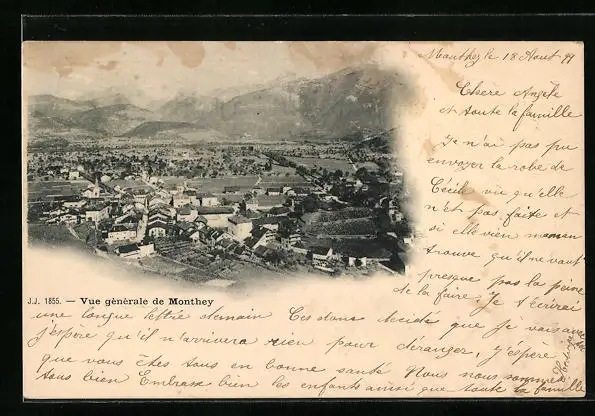 Monthey le 18 Aout 99
Chère Angèle
et toute la famille
Je n'ai pas pu
envoyer la robe de
Cécile vu qu'elle
n'et pas faite et
si elle vien maman
trouve qu'il ne vaut
presque pas la peine
de la faire Je t'écrirai
J.J. 1855. — Vue générale de Monthey
une longue lettre demain Ces donc décidé que je vais avec
j'espère qu'il n'arrivera rien pour déranger, J'éspère
que vous êtes tous en bonne santé Nous nous sommes
tous bien Embrasse bien les enfants ainsi que toute la famille